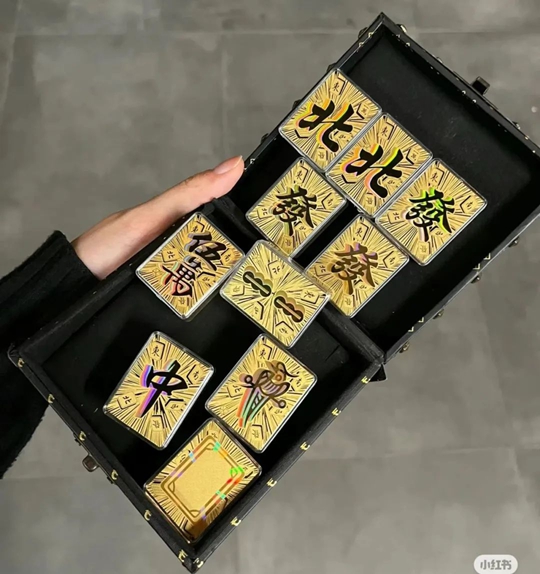 北
北
發
發
發
伍
萬
中
小红书